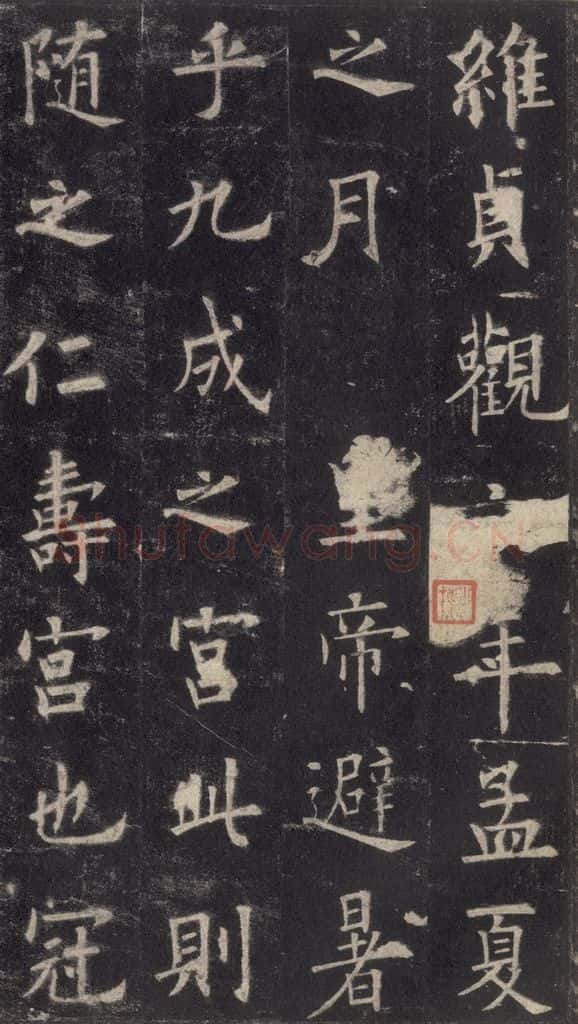 維貞觀六年孟夏
之月皇帝避暑
乎九成之宮此則
随之仁壽宮也冠
Shufawang.CN